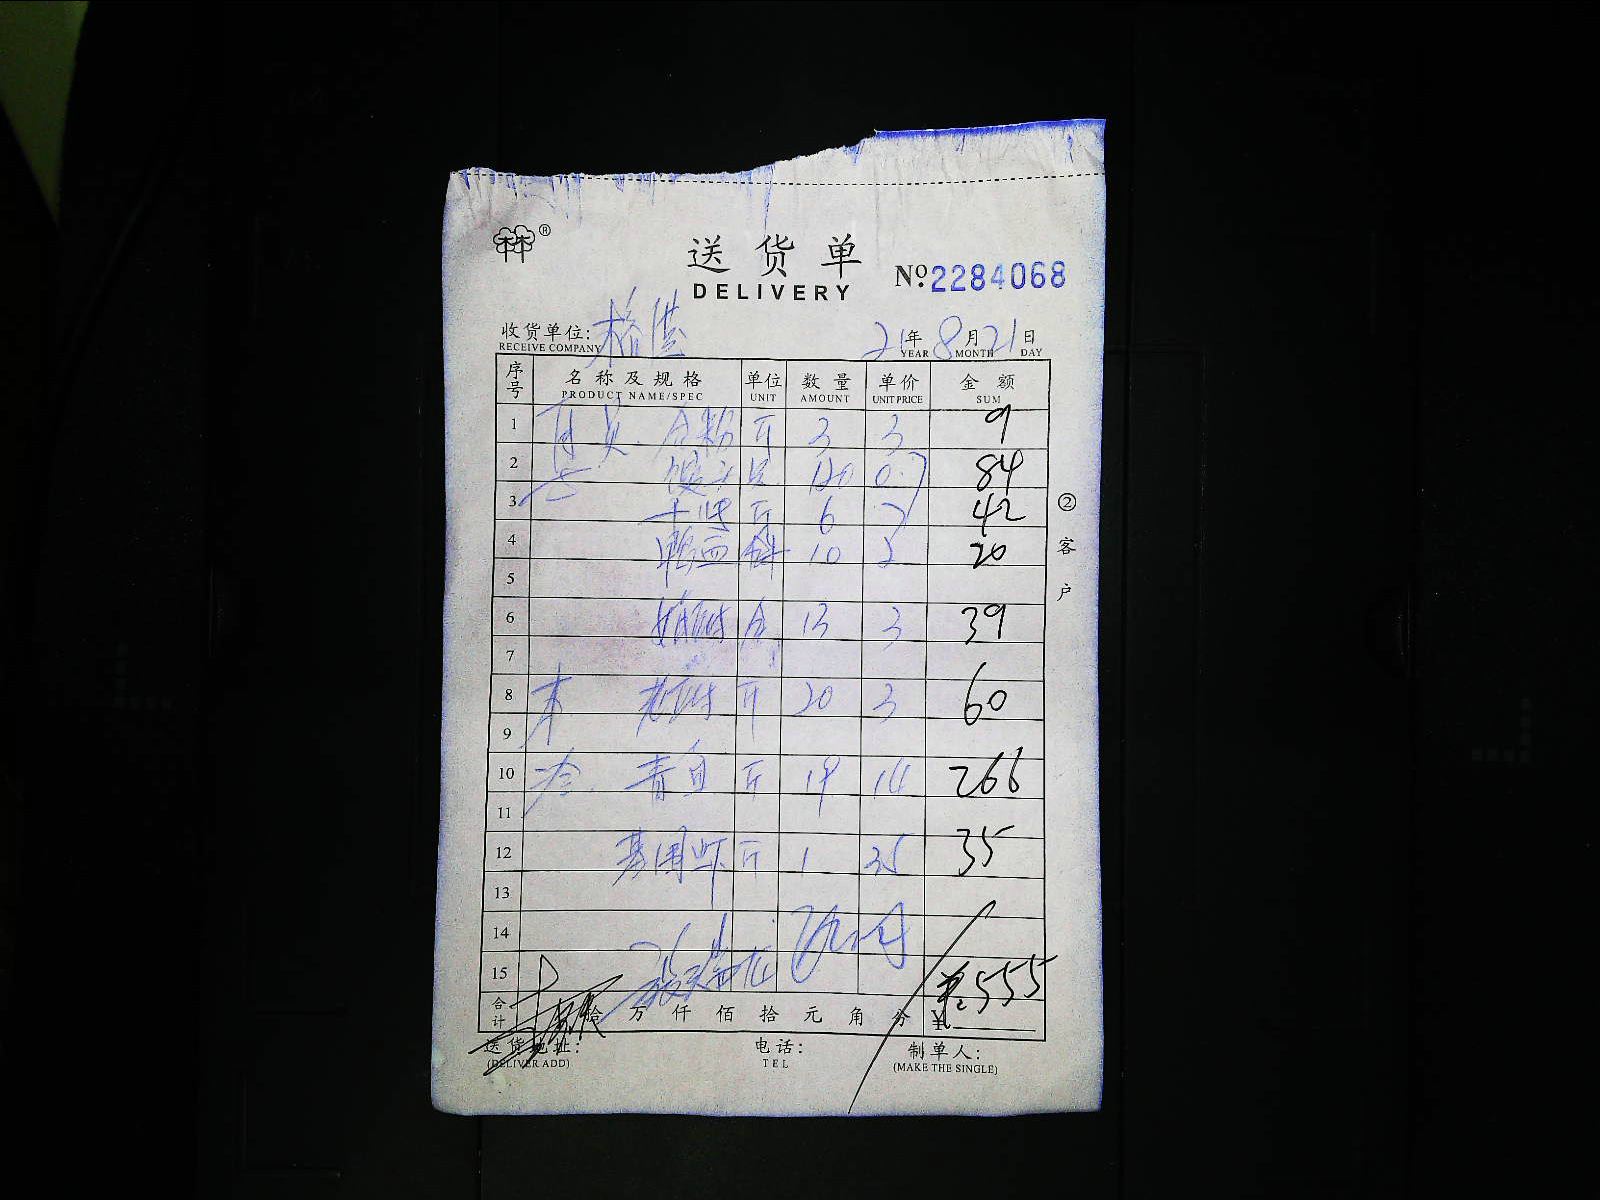 ®
送货单
DELIVERY
№ 2284068
收货单位: 格
RECEIVE COMPANY
21年 8月 21日
YEAR MONTH DAY
序号 名称及规格 单位 数量 单价 金额
PRODUCT NAME/SPEC UNIT AMOUNT UNIT PRICE SUM
1 斤 3 3 9
2 只 120 0.7 84
3 斤 6 7 42
4 鸭血 10 2 20
5
6 13 3 39
7
8 斤 20 3 60
9
10 冷 青鱼 斤 19 14 266
11
12 基围虾 斤 1 35 35
13
14
15 ¥:555
合计 拾 万 仟 佰 拾 元 角 分 ¥
送货地址: 电话: 制单人:
(DELIVER ADD) TEL (MAKE THE SINGLE)
②客户